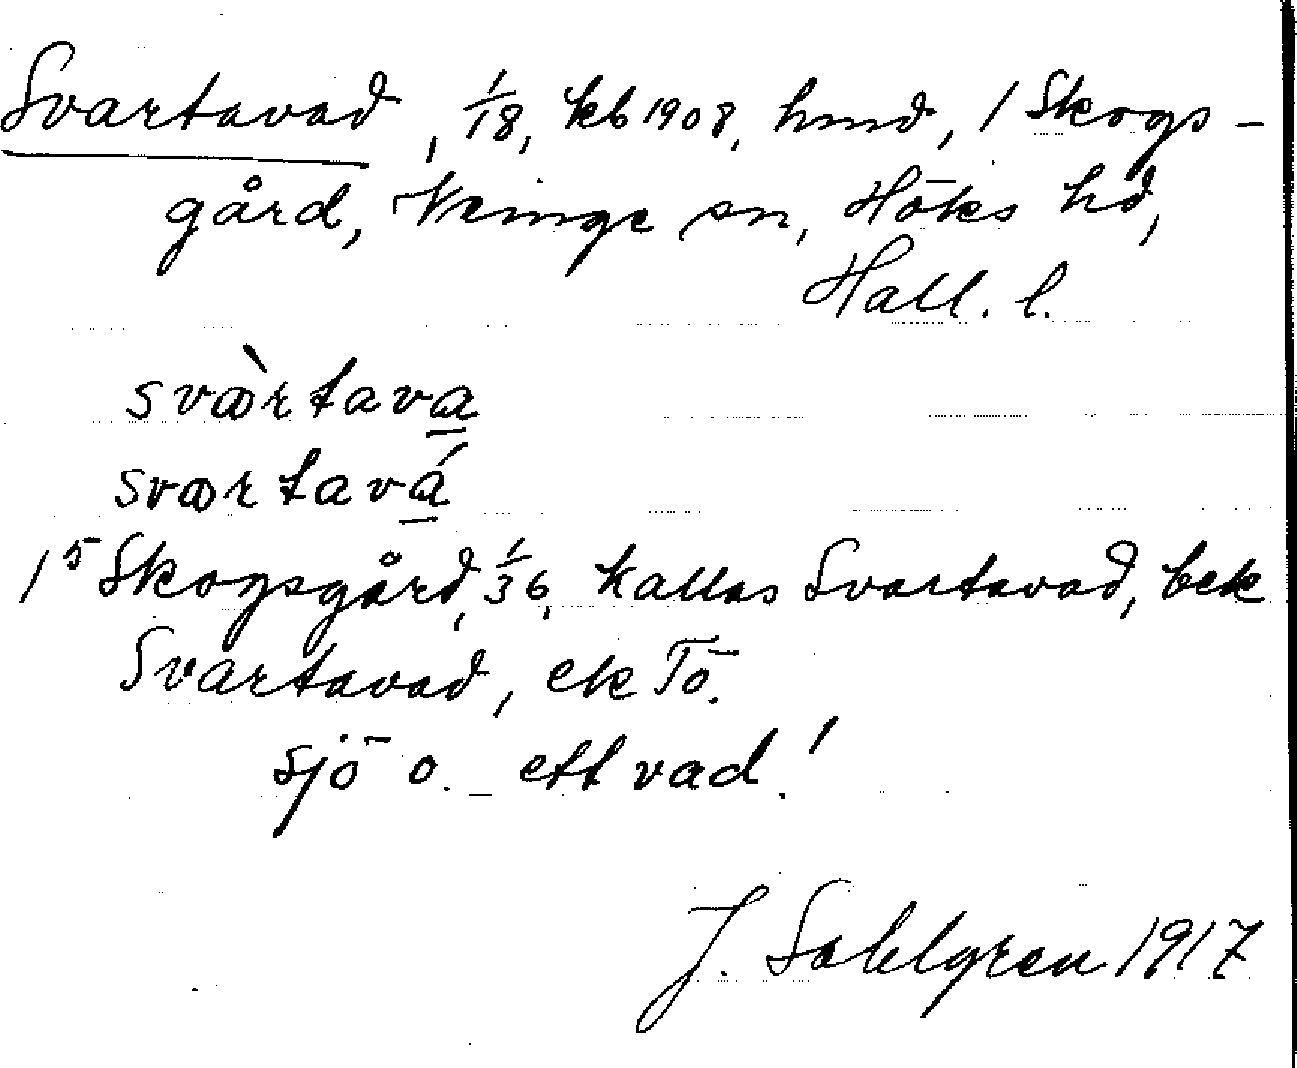 Svartavad, 1/18, kb 1908, hmd, 1 Skogs-
gård, Veinge sn, Höks hd,
Hall. l.
svæ̀rtava
sværtavá
1⁵ Skogsgård, 1/36, kallas Svartavad, bek
Svartavad, ek Tō.
sjö o. ett vad!
J. Sahlgren 1917